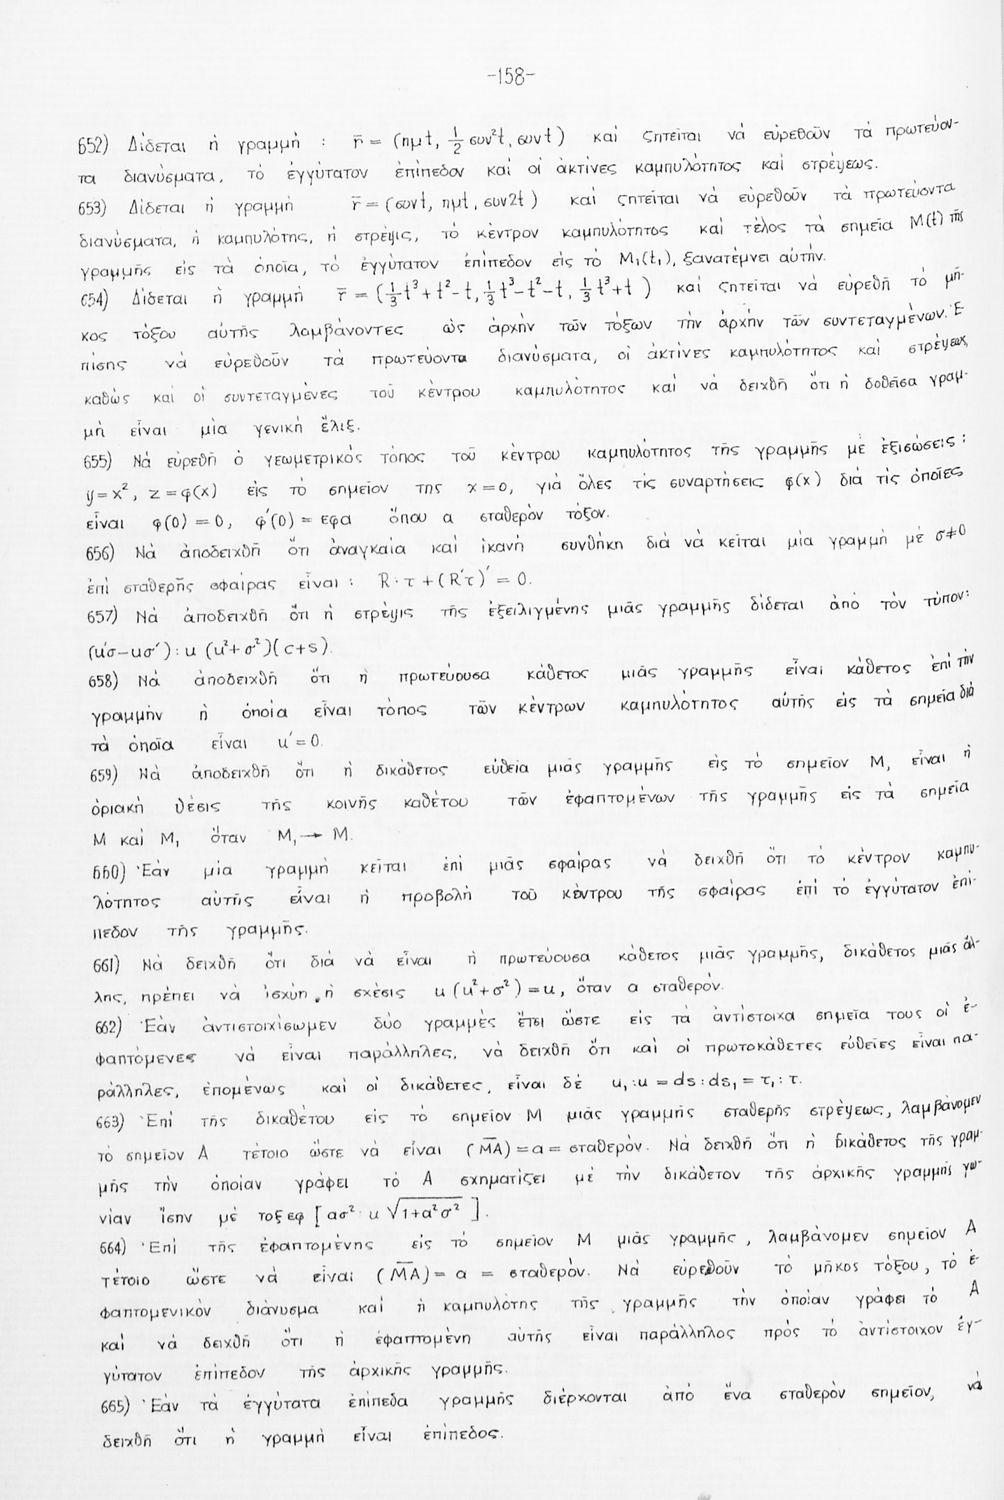 -158-
652) Δίδεται ἡ γραμμή : r̄ = (ημt, ½ συν²t, συνt) καί ζητεῖται νά εὑρεθοῦν τά πρωτεύον-
τα διανύσματα, τό ἐγγύτατον ἐπίπεδον καί οἱ ἀκτίνες καμπυλότητος καί στρέψεως.
653) Δίδεται ἡ γραμμή r̄ = (συνt, ημt, συν2t) καί ζητεῖται νά εὑρεθοῦν τά πρωτεύοντα
διανύσματα, ἡ καμπυλότης, ἡ στρέψις, τό κέντρον καμπυλότητος καί τέλος τά σημεῖα M(t) τῆς
γραμμῆς εἰς τά ὁποῖα, τό ἐγγύτατον ἐπίπεδον εἰς τό M₁(t₁), ξανατέμνει αὐτήν.
654) Δίδεται ἡ γραμμή r̄ = (⅓t³+t²-t, ⅓t³-t²-t, ⅓t³+t) καί ζητεῖται νά εὑρεθῆ τό μῆ-
κος τόξου αὐτῆς λαμβάνοντες ὡς ἀρχήν τῶν τόξων τήν ἀρχήν τῶν συντεταγμένων. Ἐ-
πίσης νά εὑρεθοῦν τά πρωτεύοντα διανύσματα, οἱ ἀκτίνες καμπυλότητος καί στρέψεως,
καθώς καί οἱ συντεταγμένες τοῦ κέντρου καμπυλότητος καί νά δειχθῆ ὅτι ἡ δοθεῖσα γραμ-
μή εἶναι μία γενική ἕλιξ.
655) Νά εὑρεθῆ ὁ γεωμετρικός τόπος τοῦ κέντρου καμπυλότητος τῆς γραμμῆς μέ ἐξισώσεις :
y=x², z=φ(x) εἰς τό σημεῖον της x=0, γιά ὅλες τίς συναρτήσεις φ(x) διά τίς ὁποῖες
εἶναι φ(0)=0, φ'(0)=εφα ὅπου α σταθερόν τόξον.
656) Νά ἀποδειχθῆ ὅτι ἀναγκαία καί ἱκανή συνθήκη διά νά κεῖται μία γραμμή μέ σ≠0
ἐπί σταθερῆς σφαίρας εἶναι : R·τ+(R'τ)'=0.
657) Νά ἀποδειχθῆ ὅτι ἡ στρέψις τῆς ἐξειλιγμένης μιᾶς γραμμῆς δίδεται ἀπό τόν τύπον:
(u'σ-uσ'):u(u²+σ²)(c+s).
658) Νά ἀποδειχθῆ ὅτι ἡ πρωτεύουσα κάθετος μιᾶς γραμμῆς εἶναι κάθετος ἐπί τήν
γραμμήν ἡ ὁποία εἶναι τόπος τῶν κέντρων καμπυλότητος αὐτῆς εἰς τά σημεῖα διά
τά ὁποῖα εἶναι u'=0.
659) Νά ἀποδειχθῆ ὅτι ἡ δικάθετος εὐθεία μιᾶς γραμμῆς εἰς τό σημεῖον M, εἶναι ἡ
ὁριακή θέσις τῆς κοινῆς καθέτου τῶν ἐφαπτομένων τῆς γραμμῆς εἰς τά σημεῖα
M καί M₁ ὅταν M₁→M.
660) Ἐάν μία γραμμή κεῖται ἐπί μιᾶς σφαίρας νά δειχθῆ ὅτι τό κέντρον καμπυ-
λότητος αὐτῆς εἶναι ἡ προβολή τοῦ κέντρου τῆς σφαίρας ἐπί τό ἐγγύτατον ἐπί-
πεδον τῆς γραμμῆς.
661) Νά δειχθῆ ὅτι διά νά εἶναι ἡ πρωτεύουσα κάθετος μιᾶς γραμμῆς, δικάθετος μιᾶς ἄλ-
λης, πρέπει νά ἰσχύη ἡ σχέσις u(u²+σ²)=u, ὅταν α σταθερόν.
662) Ἐάν ἀντιστοιχίσωμεν δύο γραμμές ἔτσι ὥστε εἰς τα ἀντίστοιχα σημεῖα τους οἱ ἐ-
φαπτόμενες νά εἶναι παράλληλες, νά δειχθῆ ὅτι καί οἱ πρωτοκάθετες εὐθεῖες εἶναι πα-
ράλληλες, ἑπομένως καί οἱ δικάθετες, εἶναι δέ u₁:u=ds:ds₁=τ₁:τ.
663) Ἐπί τῆς δικαθέτου εἰς τό σημεῖον M μιᾶς γραμμῆς σταθερῆς στρέψεως, λαμβάνομεν
τό σημεῖον A τέτοιο ὥστε νά εἶναι (M̄Ā)=α=σταθερόν. Νά δειχθῆ ὅτι ἡ δικάθετος τῆς γραμ-
μῆς τήν ὁποίαν γράφει τό A σχηματίζει μέ τήν δικάθετον τῆς ἀρχικῆς γραμμῆς γω-
νίαν ἴσην μέ τοξεφ [ασ² : u√(1+α²σ²)].
664) Ἐπί τῆς ἐφαπτομένης εἰς τό σημεῖον M μιᾶς γραμμῆς, λαμβάνομεν σημεῖον A
τέτοιο ὥστε νά εἶναι (M̄Ā)=α=σταθερόν. Νά εὑρεθοῦν τό μῆκος τόξου, τό ἐ-
φαπτομενικόν διάνυσμα καί ἡ καμπυλότης τῆς γραμμῆς τήν ὁποίαν γράφει τό A
καί νά δειχθῆ ὅτι ἡ ἐφαπτομένη αὐτῆς εἶναι παράλληλος πρός τό ἀντίστοιχον ἐγ-
γύτατον ἐπίπεδον τῆς ἀρχικῆς γραμμῆς.
665) Ἐάν τά ἐγγύτατα ἐπίπεδα γραμμῆς διέρχονται ἀπό ἕνα σταθερόν σημεῖον, νά
δειχθῆ ὅτι ἡ γραμμή εἶναι ἐπίπεδος.